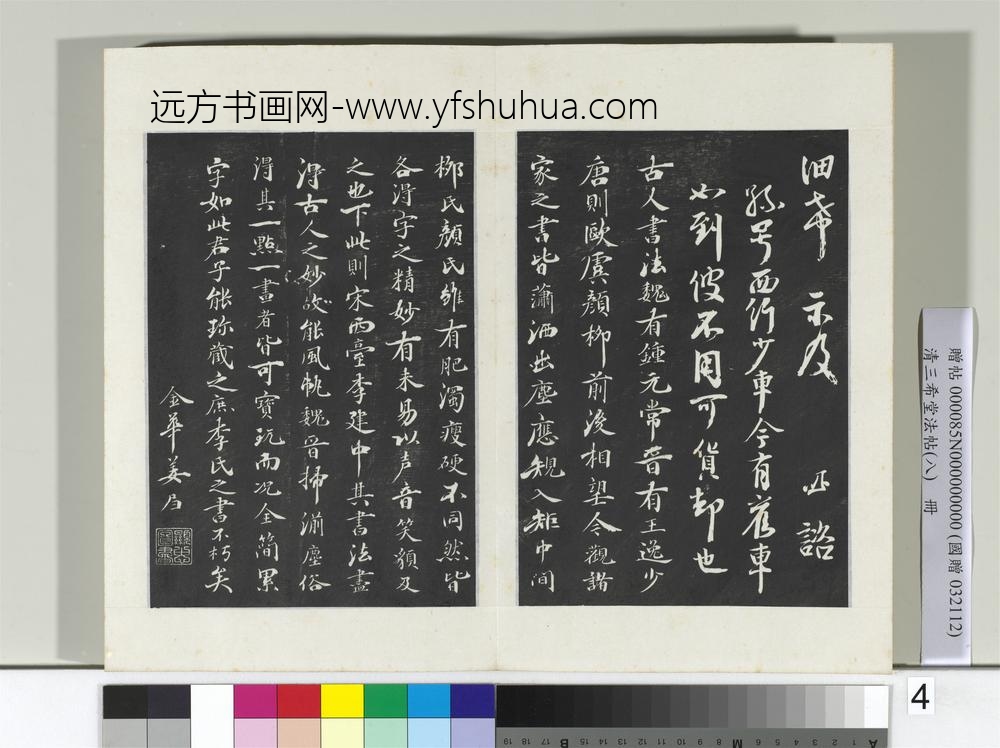 远方书画网-www.yfshuhua.com
細希 示及 諮
孫号西行少車今有舊車
如到彼不用可貨却也
古人書法魏有鍾元常晉有王逸少
唐則歐虞顏柳前後相望今觀諸
家之書皆蕭洒出塵應規入矩中間
柳氏顏氏雖有肥濁瘦硬不同然皆
各得字之精妙有未易以声音笑貌及
之也下此則宋西臺李建中其書法盡
得古人之妙故能風帆魏晉掃湔塵俗
得其一點一畫者皆可寶玩而况全簡累
字如此君子能珍藏之庶李氏之書不朽矣
金華姜
贈帖 000085N000000000 (國贈 032112)
清三希堂法帖(八) 冊
4
A 1 2 3 4 5 6 M 8 9 10 11 12 13 14 15 B 17 18 19